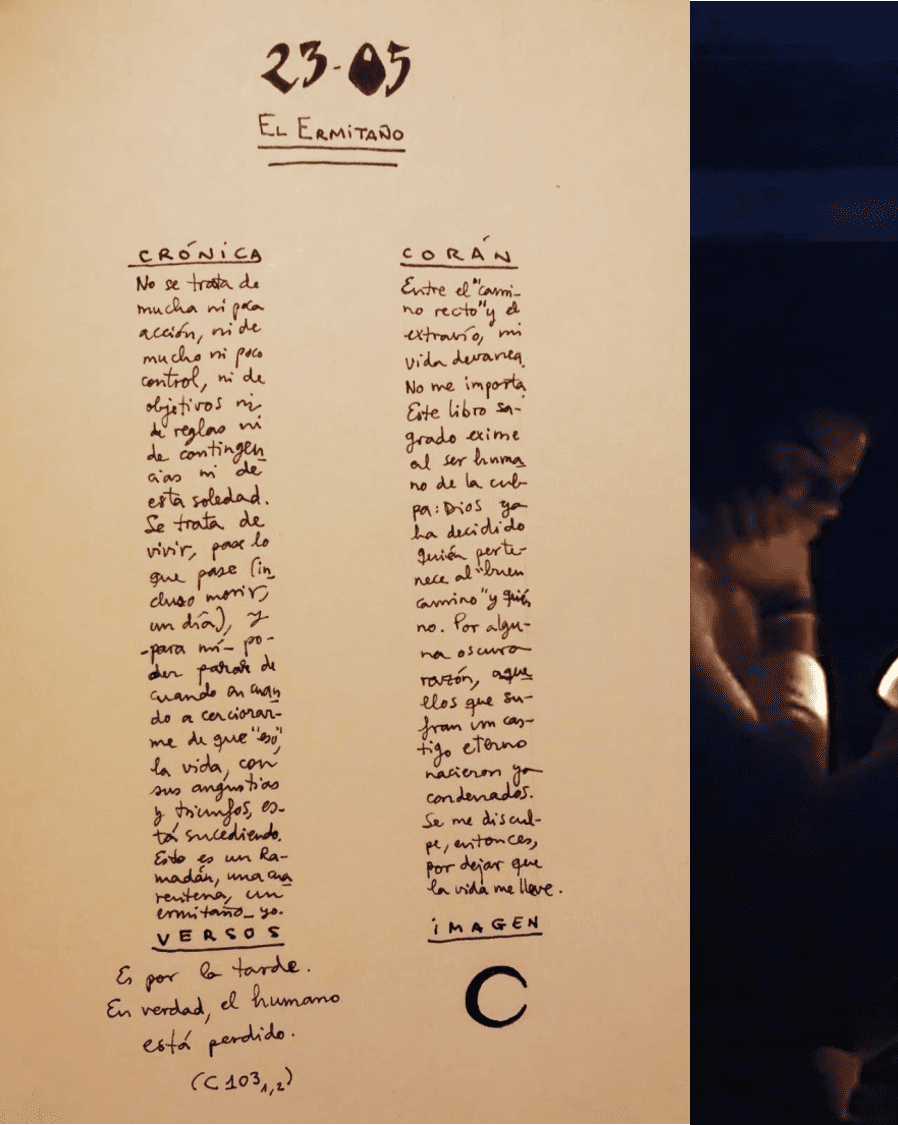 23-05
EL ERMITAÑO
CRÓNICA
No se trata de
mucha ni poca
acción, ni de
mucho ni poco
control, ni de
objetivos ni
de reglas ni
de contingen
cias ni de
esta soledad.
Se trata de
vivir, pase lo
que pase (in
cluso morir,
un día), y
-para mí- po-
der parar de
cuando en cuan
do a cerciorar-
me de que "eso",
la vida, con
sus angustias
y triunfos, es-
tá sucediendo.
Esto es un Ra-
madán, una cua
rentena, un
ermitaño_yo.
VERSOS
Es por la tarde.
En verdad, el humano
está perdido.
(C 103 1,2)
CORÁN
Entre el "cami-
no recto" y el
extravío, mi
vida devanea.
No me importa
Este libro sa-
grado exime
al ser huma
no de la cul-
pa: Dios ya
ha decidido
quién perte-
nece al "buen
camino" y quién
no. Por algu-
na oscura
razón, aque
llos que su-
fran un cas-
tigo eterno
nacieron ya
condenados.
Se me discul-
pe, entonces,
por dejar que
la vida me lleve.
IMAGEN